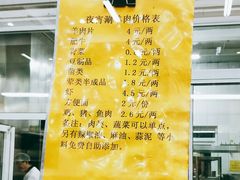 夜宵涮 肉价格表
羊肉片 4元/两
肥牛 4元/两
青菜 元/两
豆制品 1.2元/两
菌类 1.2元/两
荤类半成品 1.8元/两
虾 4.5元/两
方便面 2元/份
鸡、猪、鱼肉 2.6元/两
备注：肉类、蔬菜可以单点，
另有辣椒油、麻油、蒜泥等小
料免费自助添加。